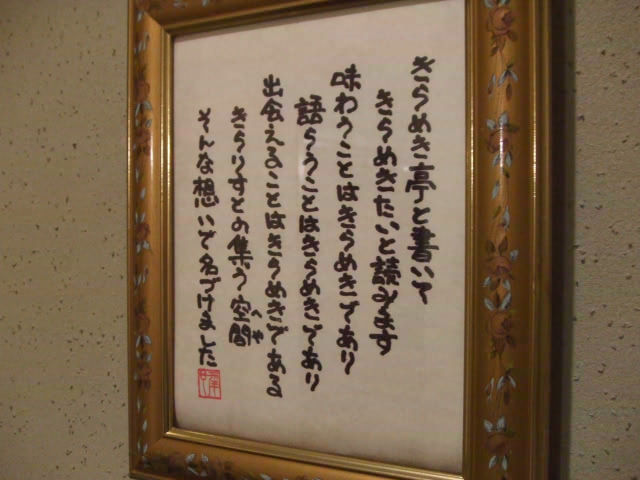 きらめき亭と書いて
きらめきたいと読みます
味わうことはきらめきであり
語らうことはきらめきであり
出会えることはきらめきである
きらりすとの集う空間
へや
そんな想いで名づけました